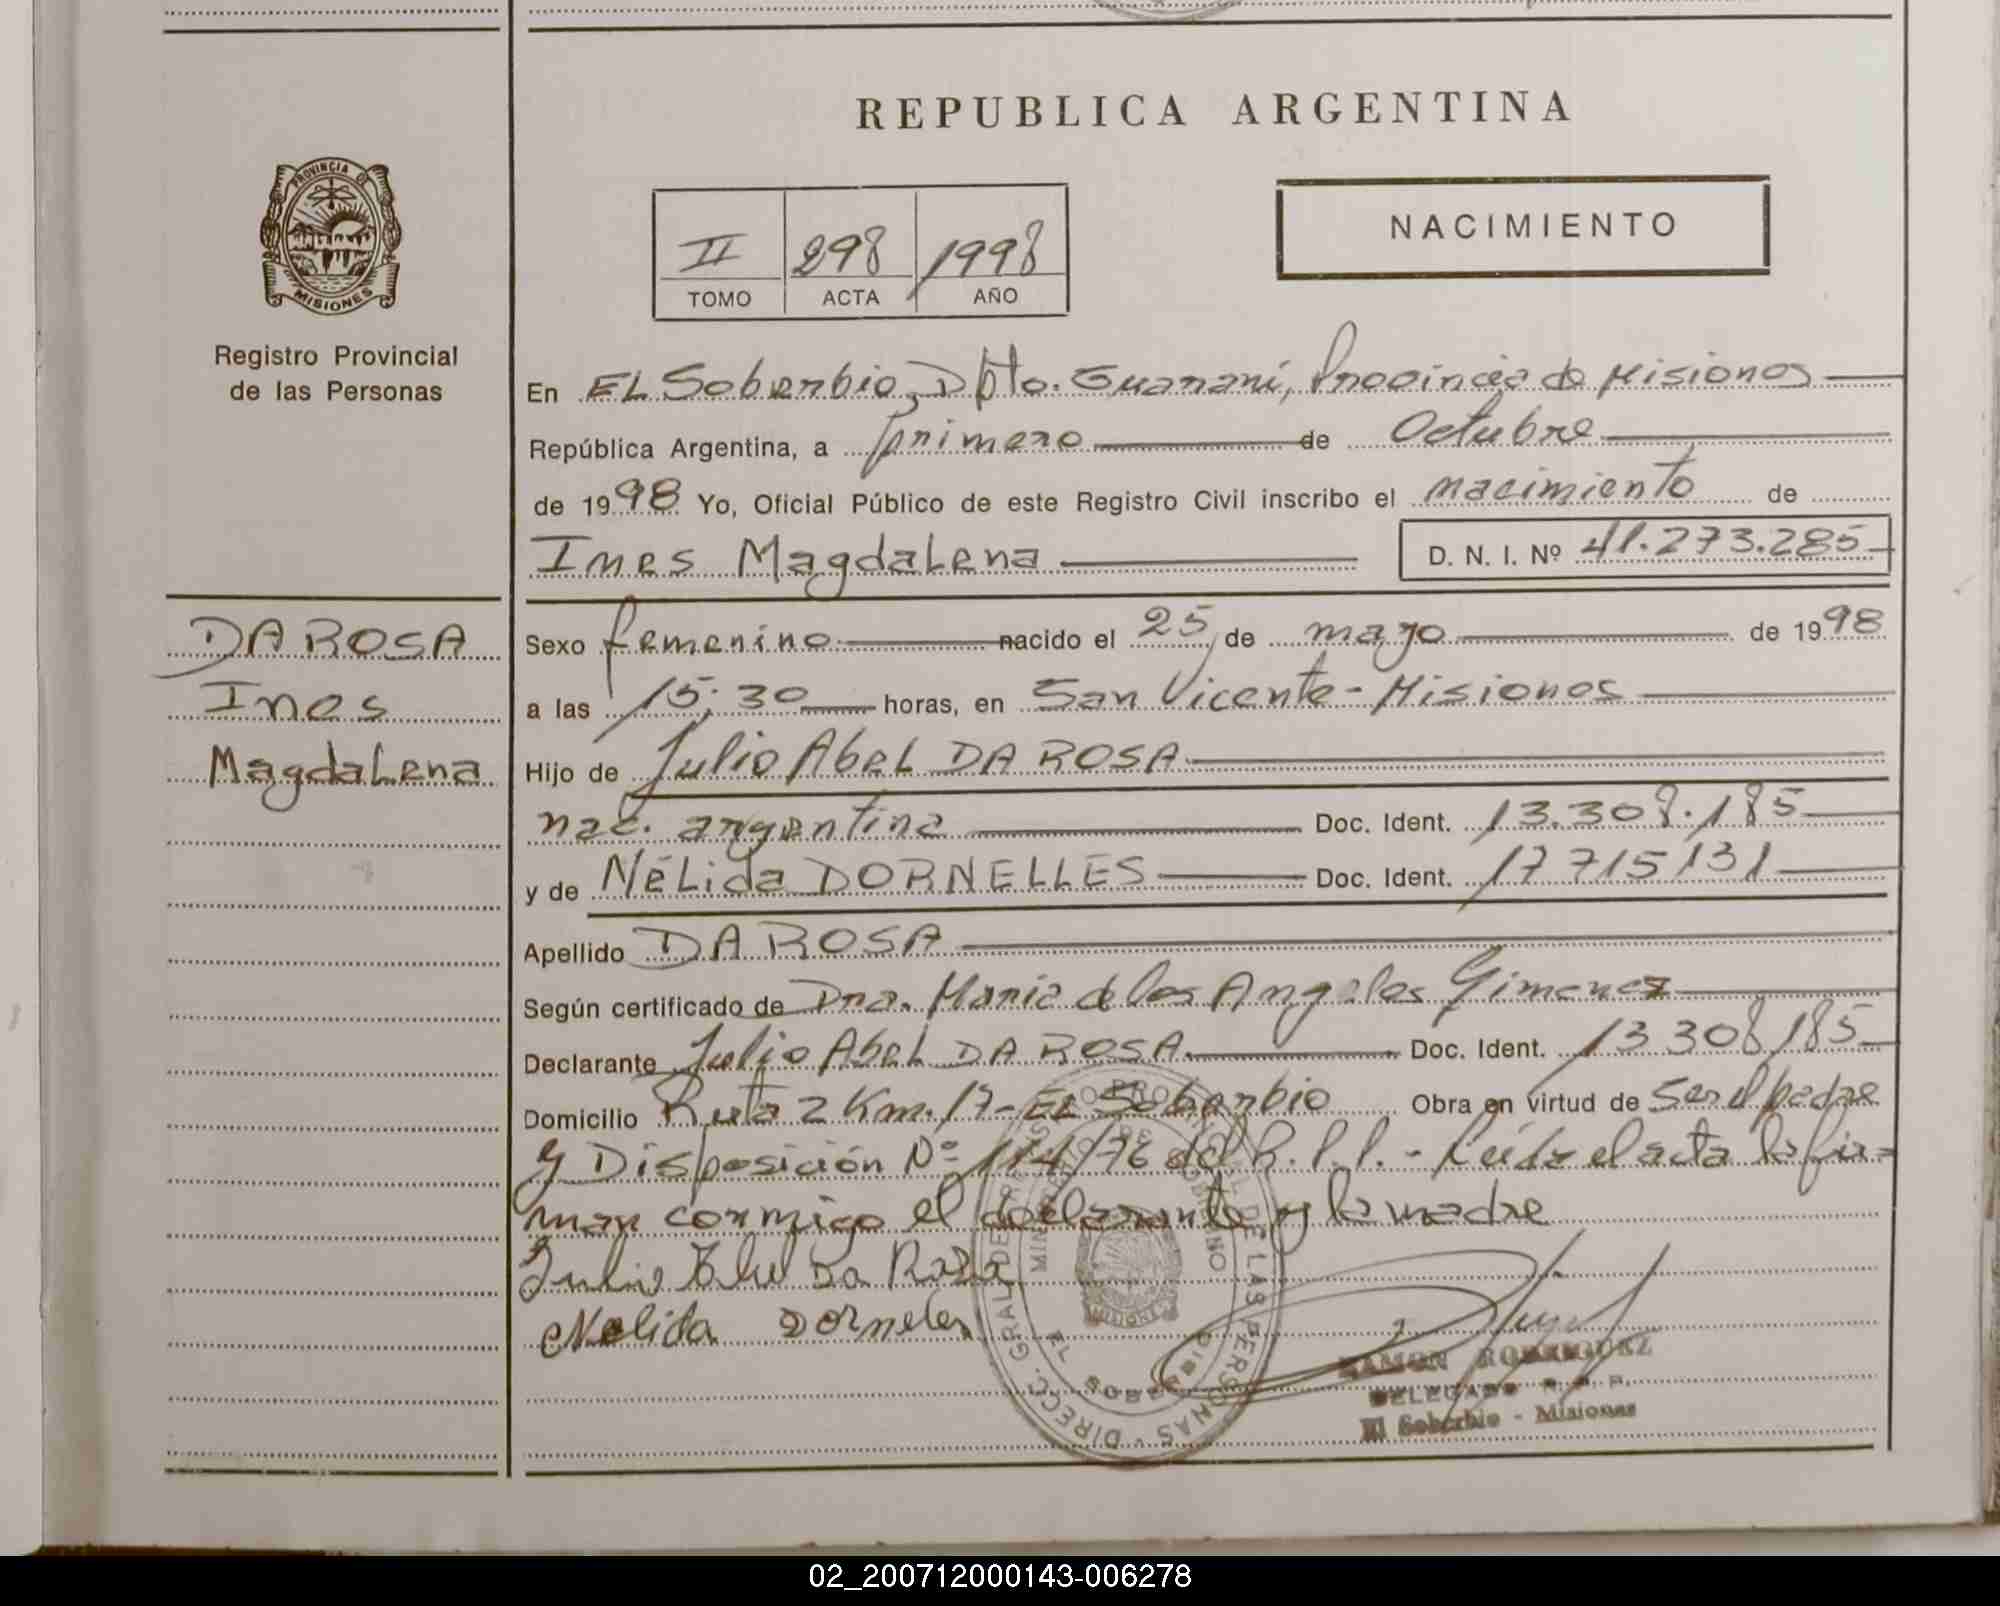 REPUBLICA ARGENTINA
PROVINCIA DE MISIONES
Registro Provincial
de las Personas
II 298 1998
TOMO ACTA AÑO
NACIMIENTO
En EL Soberbio, Dpto. Guaraní, Provincia de Misiones
República Argentina, a primero de Octubre
de 1998 Yo, Oficial Público de este Registro Civil inscribo el nacimiento de
Ines Magdalena D. N. I. Nº 41.273.285
DA ROSA
Ines
Magdalena
Sexo femenino nacido el 25 de mayo de 1998
a las 15:30 horas, en San Vicente - Misiones
Hijo de Julio Abel DA ROSA
nac. argentina Doc. Ident. 13.308.185
y de Nélida DORNELLES Doc. Ident. 17 715 131
Apellido DA ROSA
Según certificado de Dra. Maria de los Angeles Gimenez
Declarante Julio Abel DA ROSA Doc. Ident. 13 308 185
Domicilio Ruta 2 Km. 17 - EL Soberbio Obra en virtud de ser el padre
y Disposición Nº 114/76 del R.P.P. - Leída el acta la fir=
man conmigo el declarante y la madre
Julio Abel Da Rosa
Nelida Dorneles
DIRECC. GRAL. DE REGISTRO PROVINCIAL DE LAS PERSONAS
MINISTERIO DE GOBIERNO
MISIONES
EL SOBERBIO
RAMON RODRIGUEZ
DELEGADO R. P. P.
El Soberbio - Misiones
02_200712000143-006278